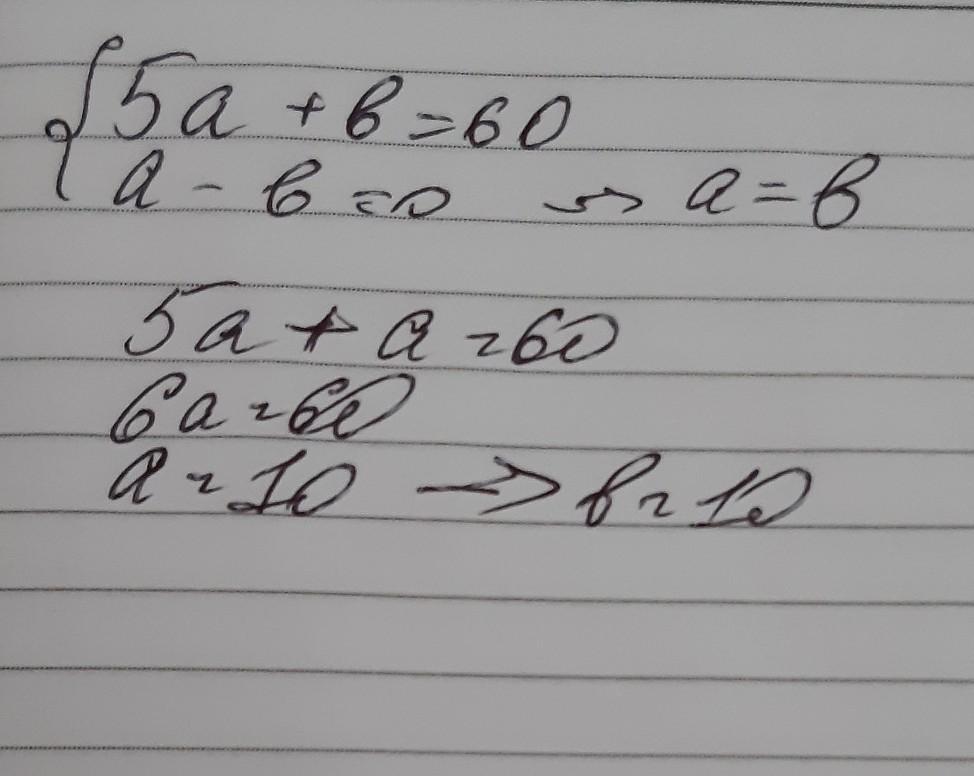 {5a + b = 60
a - b = 0 → a = b
5a + a = 60
6a = 60
a = 10 → b = 10